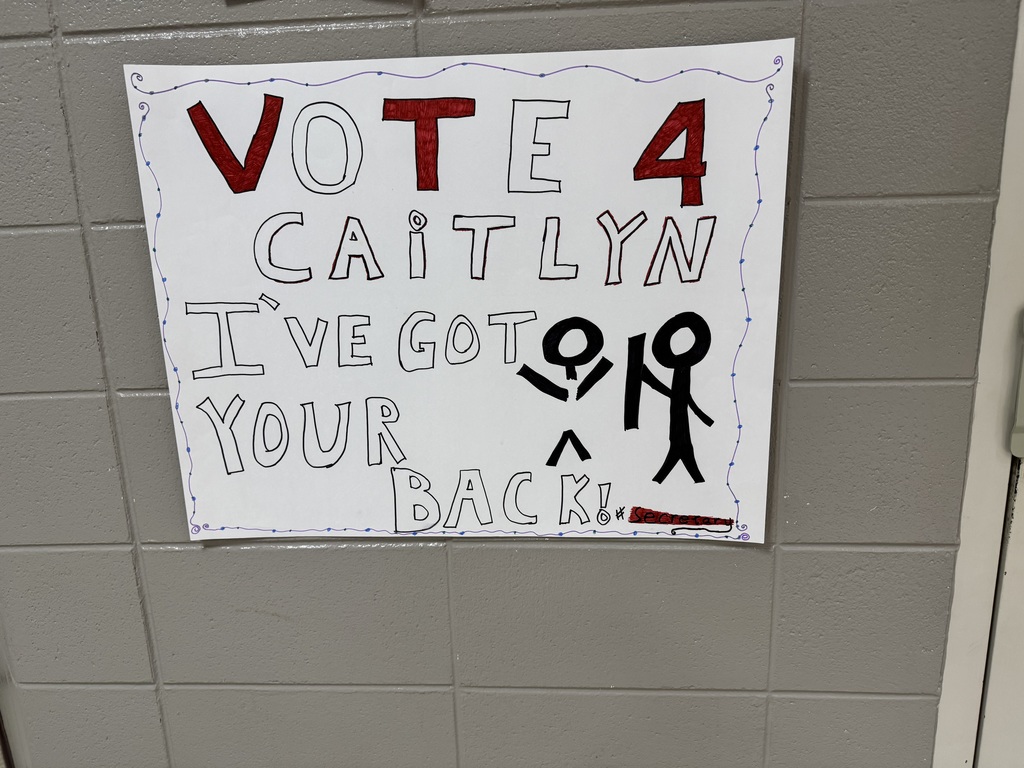 VOTE 4
CAiTLYN
I'VE GOT
YOUR
BACK! #secretary